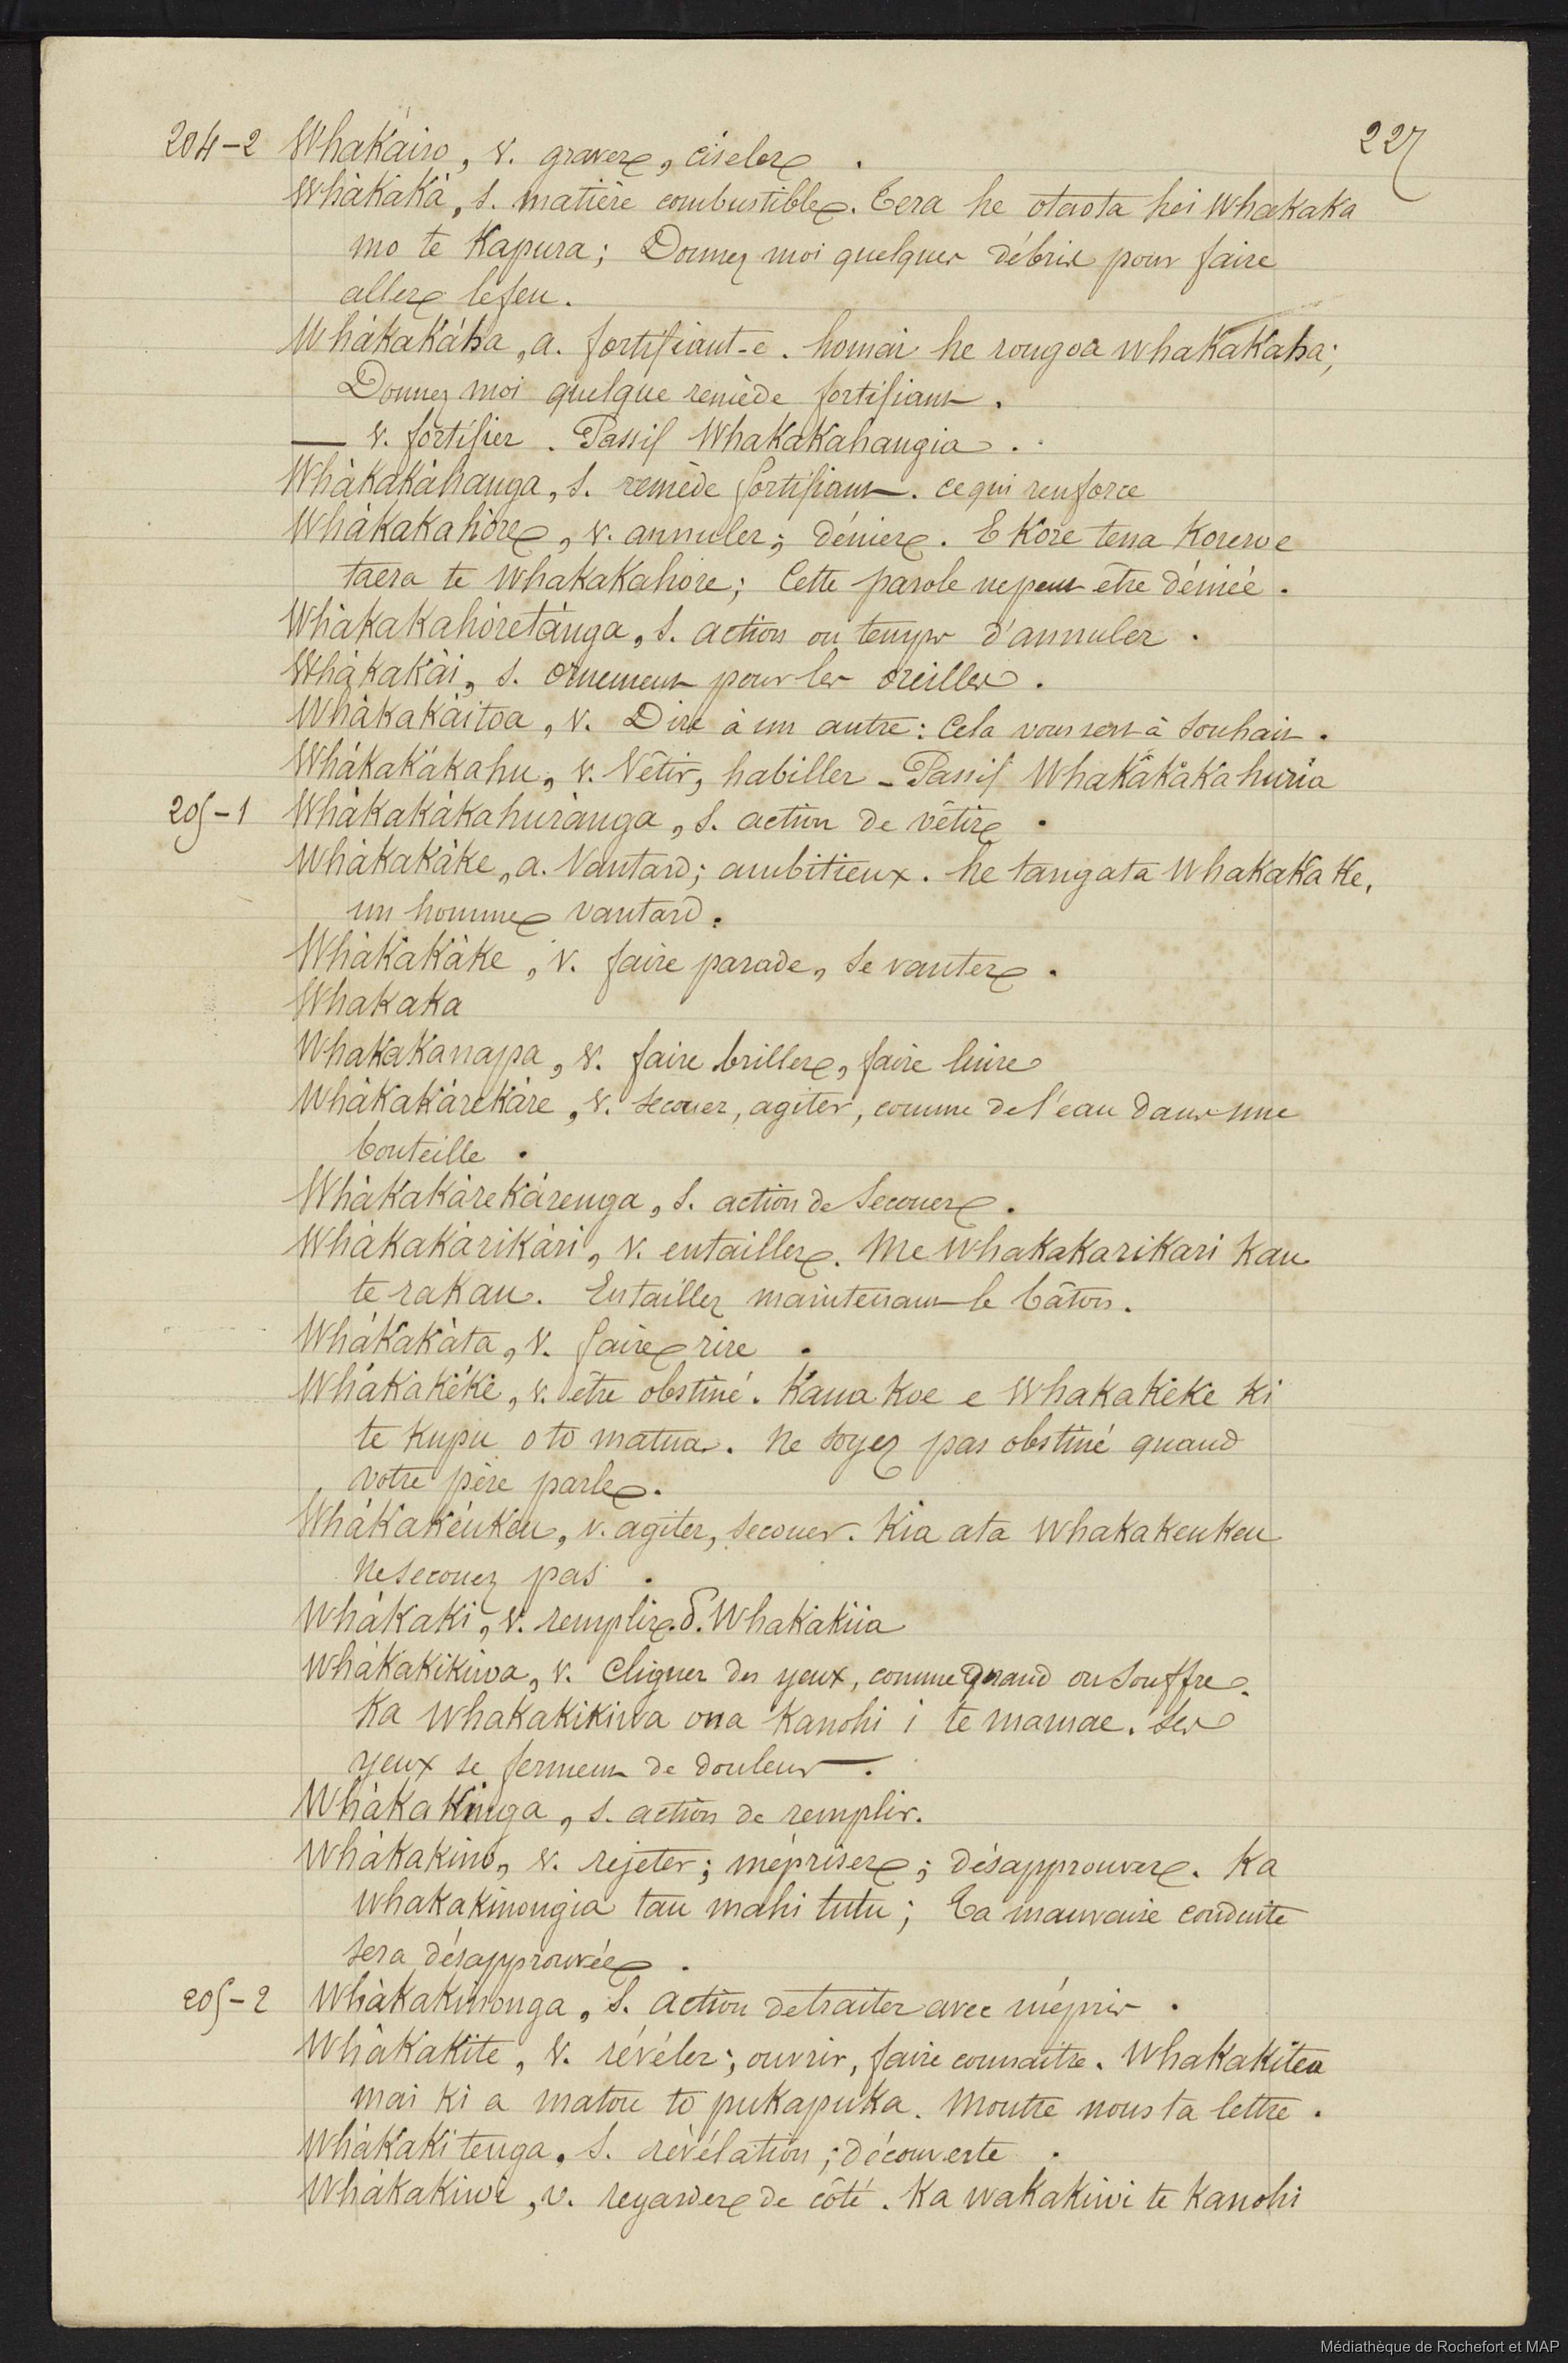 227
204-2 Whakáiro, v. graver, ciseler.
Whákaká, s. matière combustible. Tera he otaota hei whakaka
mo te Kapura; Donnez moi quelques débris pour faire
aller le feu.
Whákakáha, a. fortifiant-e. homai he rongoa whakakaha;
Donnez moi quelque remède fortifiant.
— v. fortifier. Passif Whakakahangia.
Whákakáhanga, s. remède fortifiant. ce qui renforce
Whákakahóre, v. annuler; dénier. E Kore tena Korero e
taea te whakakahore; Cette parole ne peut etre déniée.
Whákakahóretánga, s. action ou temps d'annuler.
Whákakái, s. ornement pour les oreilles.
Whákakáitoa, v. Dire à un autre: Cela vous sert à souhait.
Whákakákahu, v. Vêtir, habiller - Passif Whakákákahuria
205-1 Whákakákahuránga, s. action de vêtir.
Whákakáke, a. Vantard; ambitieux. he tangata whakakake,
un homme vantard.
Whákakáke, v. faire parade, se vanter.
Whakaka
Whakakanapa, v. faire briller, faire luire
Whákakárekáre, v. secouer, agiter, comme de l'eau dans une
bouteille.
Whákakárekárenga, s. action de secouer.
Whákakárikári, v. entailler. Me whakakarikari Kau
te rakau. Entaillez maintenant le bâton.
Whákakáta, v. faire rire.
Whákakéke, v. être obstiné. Kaua Koe e whakakeke ki
te kupu o to matua. Ne soyez pas obstiné quand
votre père parle.
Whákakéukeu, v. agiter, secouer. Kia ata whakakeukeu
Ne secouez pas.
Whákaki, v. remplir. P. Whakakiia
Whákakikiwa, v. Cligner des yeux, comme quand on souffre.
Ka whakakikiwa ona Kanohi i te mamae. Ses
yeux se ferment de douleur.
Whákakinga, s. action de remplir.
Whákakinó, v. rejeter; mépriser; désapprouver. Ka
whakakinongia tau mahi tutu; Ta mauvaise conduite
sera désapprouvée.
205-2 Whákakinonga, s. action de traiter avec mépris.
Whákakite, v. révéler; ouvrir, faire connaitre. Whakakitea
mai ki a matou to pukapuka. Montre nous ta lettre.
Whákakitenga, s. révélation; découverte.
Whákakiwi, v. regarder de côté. Ka wakakiwi te Kanohi
Médiathèque de Rochefort et MAP